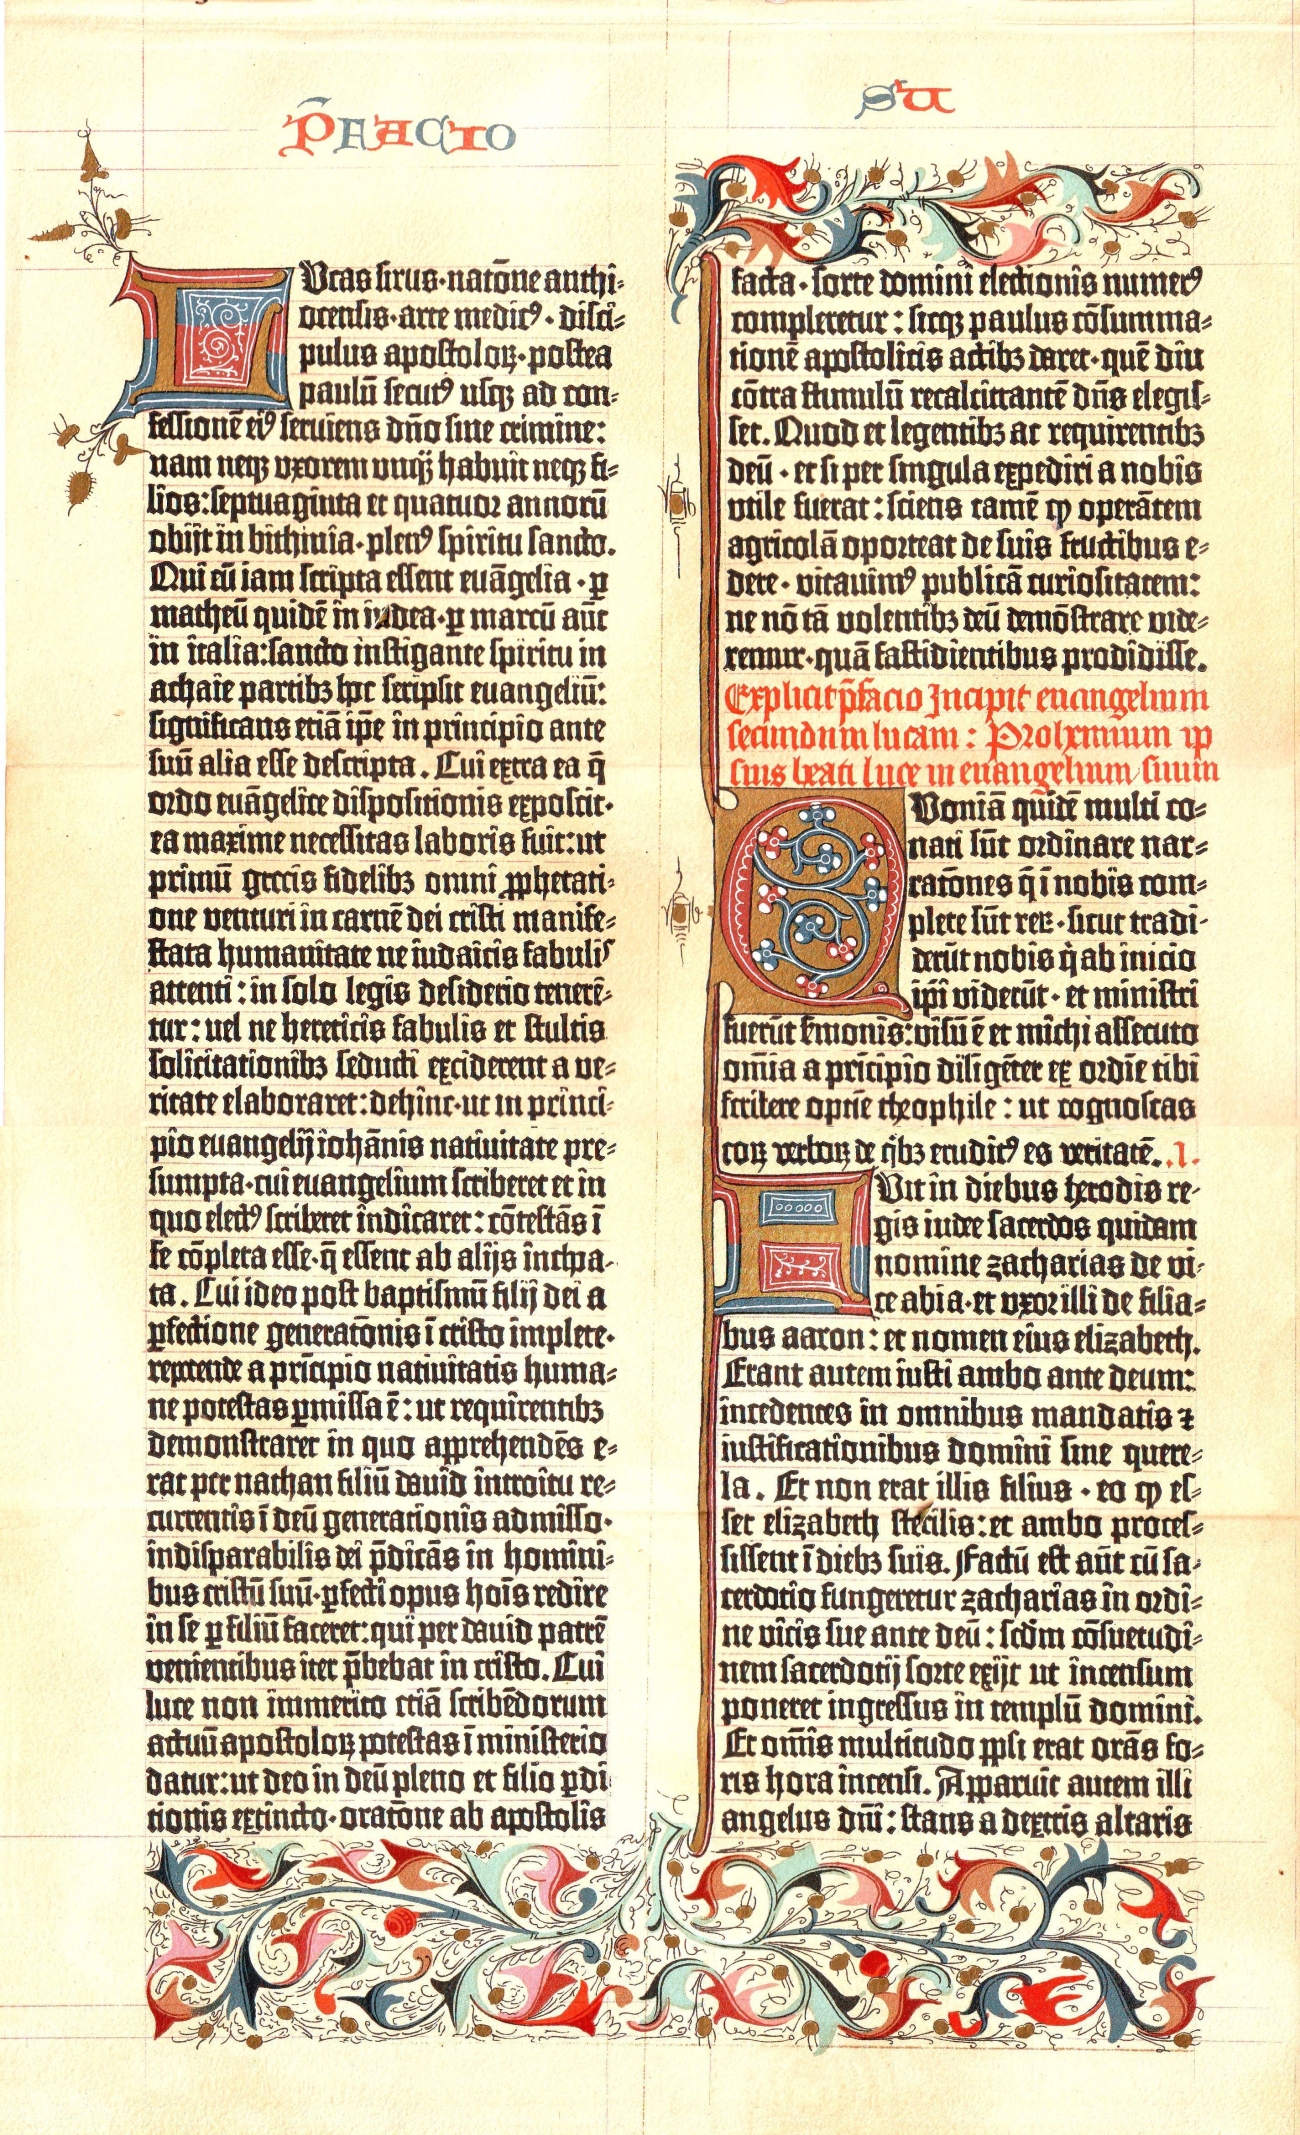 P̄FACIO
SU
LUcas sirus·natōne anthi-
ocensis·arte medicꝰ·disci-
pulus apostoloꝝ·postea
paulū secutꝰ usqꝫ ad con-
fessionē eiꝰ serviens dn̄o sine crimine:
nam neqꝫ uxorem unqᷓ habuit neqꝫ fi-
lios:septuaginta et quatuor annorū
obijt in bithinia·plenꝰ spiritu sancto.
Qui cū iam scripta essent euāgelia·ꝑ
matheū quidē in iudea·ꝑ marcū aūt
in italia:sancto instigante spiritu in
achaie partibꝫ hoc scripsit euangeliū:
significans etiā ip̄e in principio ante
suū alia esse descripta. Cui extra ea q̄
ordo euāgelice dispositionis exposcit·
ea maxime necessitas laboris fuit:ut
primū grecis fidelibꝫ omni ꝓphetati-
one venturi in carnē dei cristi manife-
stata humanitate ne iudaicis fabulis
attenti: in solo legis desiderio tenerē-
tur: vel ne hereticis fabulis et stultis
solicitationibꝫ seducti exciderent a ve-
ritate elaboraret:dehinc·ut in princi-
pio euangelij iohānis nativitate pre-
sumpta·cui euangelium scriberet et in
quo electꝰ scriberet indicaret: cōtestās ī
se cōpleta esse·q̄ essent ab alijs inchoa-
ta. Cui ideo post baptismū filij dei a
ꝑfectione generatōnis ī cristo implete·
repetende a principio nativitatis huma-
ne potestas ꝑmissa ē: ut requirentibꝫ
demonstraret in quo apprehendēs e-
rat per nathan filiū david introitu re-
currentis ī deū generationis admisso·
indisparabilis dei p̄dicās in homini-
bus cristū suū·ꝑfecti opus hoīs redire
in se ꝑ filiū faceret: qui per david patrē
venientibus iter p̄bebat in cristo. Cui
luce non immerito etiā scribēdorum
actuū apostoloꝝ potestas ī ministerio
datur: ut deo in deū pleno et filio ꝑdi
tionis extincto·oratōne ab apostolis
facta·sorte domini electionis numerꝰ
compleretur: sicqꝫ paulus cōsumma-
tionē apostolicis actibꝫ daret·quē diu
cōtra stimulū recalcitrantē dn̄s elegis-
set. Quod et legentibꝫ ac requirentibꝫ
deū·et si per singula expediri a nobis
utile fuerat: sciens tamē ꝙ operātem
agricolā oporteat de suis fructibus e-
dere·vitavimꝰ publicā curiositatem:
ne nō tā volentibꝫ deū demōstrare vide-
remur·quā fastidientibus prodidisse.
Explicit p̄facio Incipit euangelium
secundum lucam: Prohemium ip
sius beati luce in euangelium suum
QUoniā quidē multi co-
nati sūt ordinare nar-
ratōnes q̄ ī nobis com-
plete sūt reꝝ·sicut tradi-
derūt nobis q̇ ab inicio
ip̄i viderūt·et ministri
fuerūt s̄monis:visū ē et michi assecuto
om̄ia a prīcipio diligēter ex ordīe tibi
scribere optīe theophile: ut cognoscas
eoꝝ verboꝝ de q̇bꝫ eruditꝰ es veritatē. .I.
FUit in diebus herodis re-
gis iudee sacerdos quidam
nomine zacharias de vi-
ce abia·et uxor illi de filia-
bus aaron: et nomen eius elizabeth.
Erant autem iusti ambo ante deum:
incedentes in omnibus mandatis ⁊
iustificationibus domini sine quere-
la. Et non erat illis filius·eo ꝙ es-
set elizabeth sterilis:et ambo proces-
sissent ī diebꝫ suis. Factū est aūt cū sa-
cerdotio fungeretur zacharias in ordi-
ne vicis sue ante deū: scd̄m cōsuetudi-
nem sacerdotij sorte exijt ut incensum
poneret ingressus in templū domini.
Et om̄is multitudo ꝓꝓli erat orās fo-
ris hora incensi. Apparuit autem illi
angelus dn̄i: stans a dextris altaris